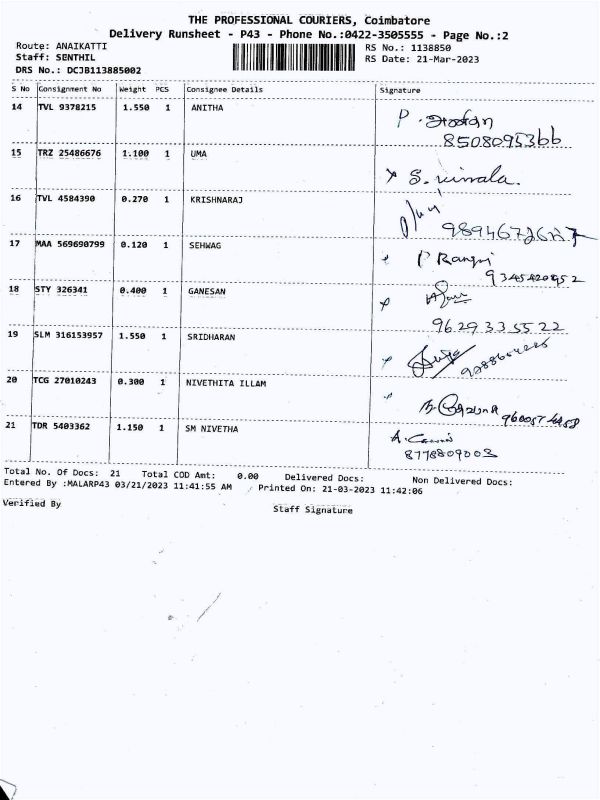 THE PROFESSIONAL COURIERS, Coimbatore
Delivery Runsheet - P43 - Phone No.:0422-3505555 - Page No.:2
Route: ANAIKATTI RS No.: 1138850
Staff: SENTHIL RS Date: 21-Mar-2023
DRS No.: DCJB113885002
S No Consignment No Weight PCS Consignee Details Signature
14 TVL 9378215 1.550 1 ANITHA P.
8508095366
15 TRZ 25486676 1.100 1 UMA S. vimala.
16 TVL 4584390 0.270 1 KRISHNARAJ
17 MAA 569690799 0.120 1 SEHWAG P Rangi
9345420952
18 STY 326341 0.400 1 GANESAN
9629335522
19 SLM 316153957 1.550 1 SRIDHARAN
20 TCG 27010243 0.300 1 NIVETHITA ILLAM
21 TDR 5403362 1.150 1 SM NIVETHA
8778809003
Total No. Of Docs: 21 Total COD Amt: 0.00 Delivered Docs: Non Delivered Docs:
Entered By :MALARP43 03/21/2023 11:41:55 AM Printed On: 21-03-2023 11:42:06
Verified By Staff Signature